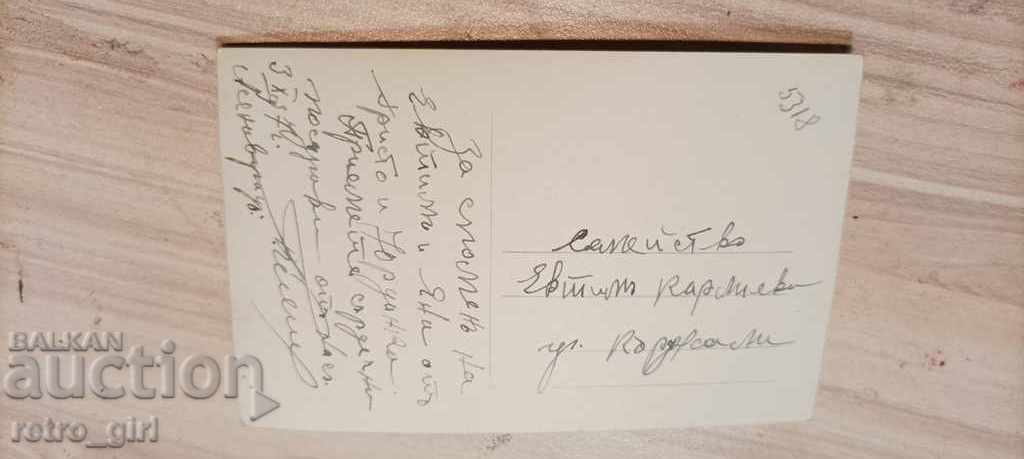 За спомень на
Евтимъ и Яни отъ
Христо и
Приемете сърдечни
поздрави отъ
3 XII
гр.
5318
Семейство
Евтимъ Кармиеви
гр. Кърджали
BALKAN
auction
retro_girl